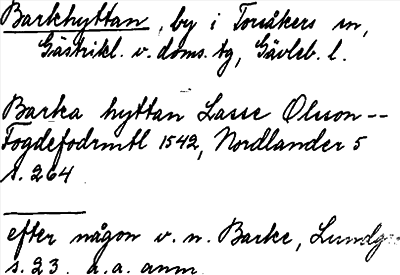 Barkhyttan, by i Torsåkers sn,
Gästrikl. v. doms. tg, Gävleb. l.
Barka hyttan Lasse Olsson --
Fogdefodrmtl 1542, Nordlander 5
s. 264
efter någon v. n. Barke, Lundgr
s. 23. a. a. anm.